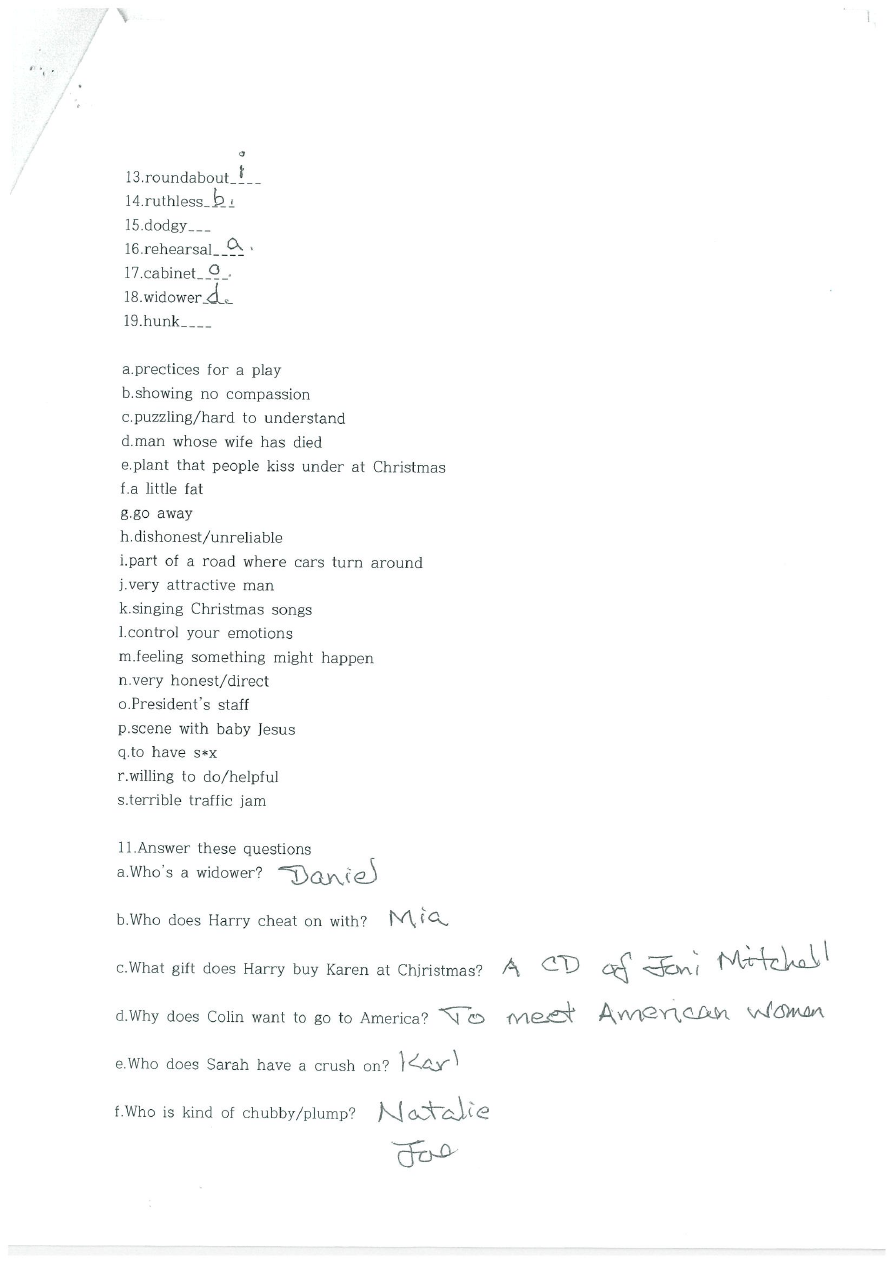 13.roundabout_i___
14.ruthless_b.
15.dodgy___
16.rehearsal_a.
17.cabinet_o_.
18.widower_d_
19.hunk____
a.prectices for a play
b.showing no compassion
c.puzzling/hard to understand
d.man whose wife has died
e.plant that people kiss under at Christmas
f.a little fat
g.go away
h.dishonest/unreliable
i.part of a road where cars turn around
j.very attractive man
k.singing Christmas songs
l.control your emotions
m.feeling something might happen
n.very honest/direct
o.President's staff
p.scene with baby Jesus
q.to have s*x
r.willing to do/helpful
s.terrible traffic jam
11.Answer these questions
a.Who's a widower? Daniel
b.Who does Harry cheat on with? Mia
c.What gift does Harry buy Karen at Chjristmas? A CD of Joni Mitchell
d.Why does Colin want to go to America? To meet American women
e.Who does Sarah have a crush on? Karl
f.Who is kind of chubby/plump? Natalie
Joe